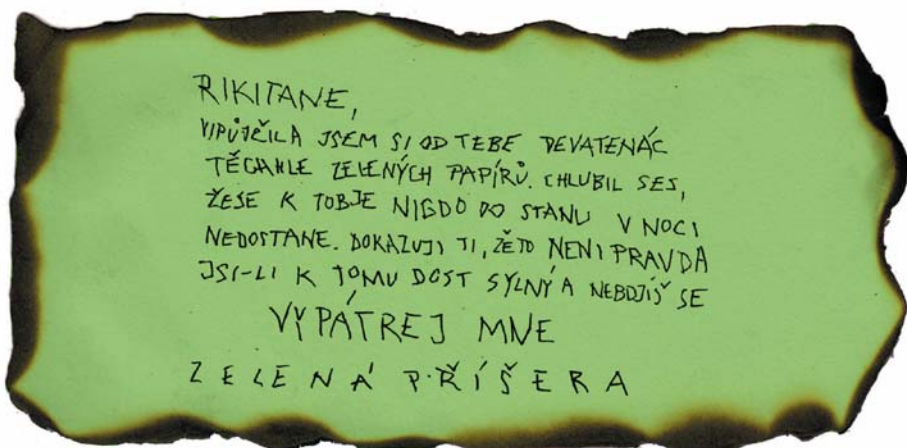 RIKITANE,
VIPŮJČILA JSEM SI OD TEBE DEVATENÁC
TĚCHHLE ZELENÝCH PAPÍRŮ. CHLUBIL SES,
ŽESE K TOBJE NIGDO DO STANU V NOCI
NEDOSTANE. DOKAZUJI TI, ŽETO NENI PRAVDA
JSI-LI K TOMU DOST SYLNÝ A NEBOJÍŠ SE
VYPÁTREJ MNE
ZELENÁ PŘÍŠERA